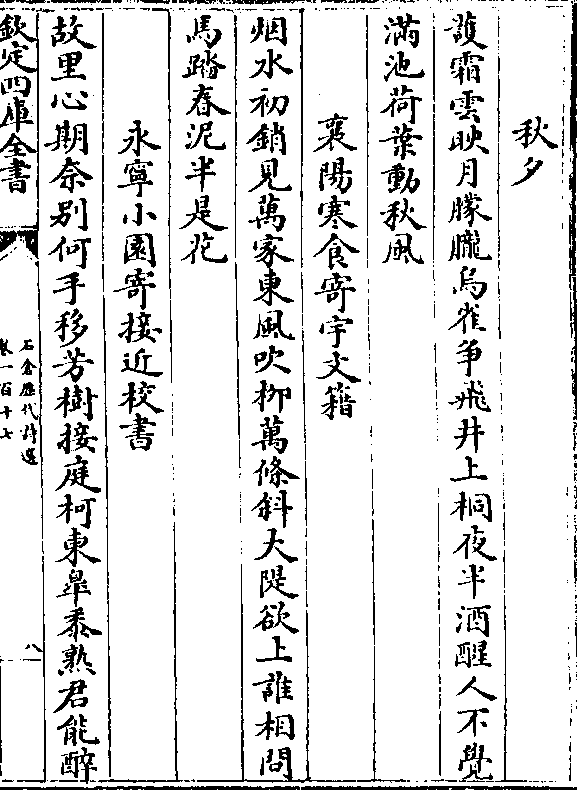 秋夕
護霜雲映月朦朧烏雀争飛井上桐夜半酒醒人不覺
滿池荷葉動秋風
襄陽寒食寄宇文籍
烟水初銷見萬家東風吹柳萬條斜大隄欲上誰相問
馬踏春泥半是花
永寧小園寄接近校書
故里心期奈别何手移芳樹接庭柯東臯黍熟君能醉
欽定四庫全書
石倉歷代詩選
卷一百十七
八